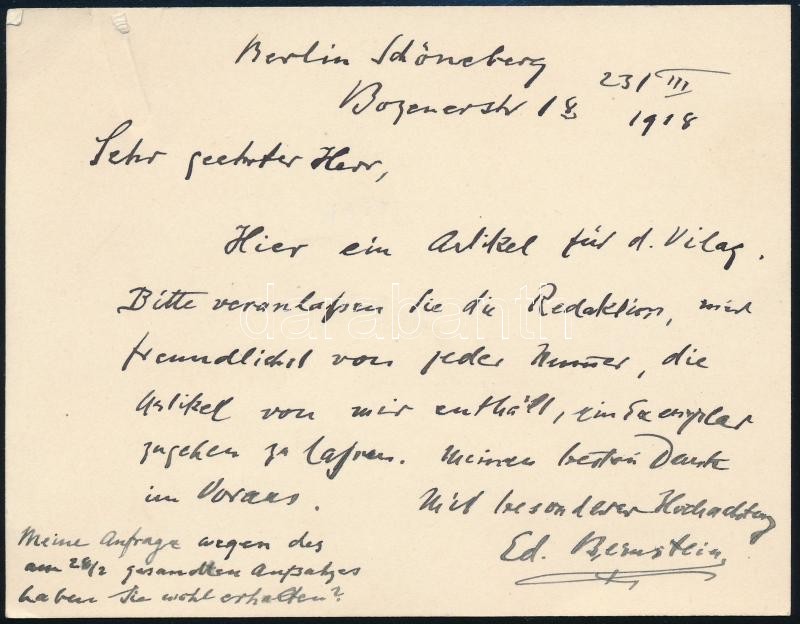 Berlin Schöneberg
Bozenerstr 18 23/III 1918
Sehr geehrter Herr,
Hier ein Artikel für d. Vilag.
Bitte veranlaßen Sie die Redaktion, mir
freundlichst von jeder Numer, die
Artikel von mir enthält, ein Exemplar
zugehen zu laßen. Meinen besten Dank
im Voraus. Mit besonderer Hochachtung
Ed. Bernstein
Meine Anfrage wegen des
am 28/2 gesandten Aufsatzes
haben Sie wohl erhalten?
darabanth